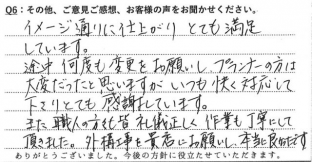 Q6：その他、ご意見ご感想、お客様の声をお聞かせください。
イメージ通りに仕上がり とても満足
しています。
途中 何度も変更をお願いし、プランナーの方は
大変だったと思いますが いつも快く対応して
下さりとても感謝しています。
また 職人の方も皆 礼儀正しく 作業も丁寧にして
頂きました。外構工事を貴店にお願いし、本当に良かったです
ありがとうございました。今後の方針に役立たせていただきます。